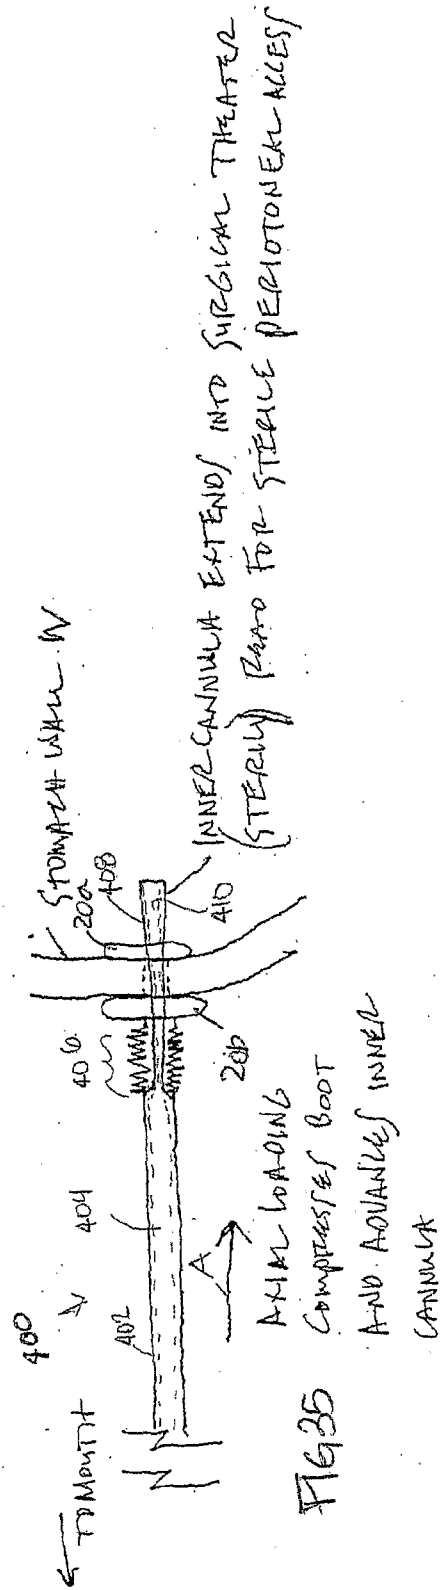 400
TO MOUTH
402
404
406
STOMACH WALL W
20a
408
410
20b
INNER CANNULA EXTENDS INTO SURGICAL THEATER
(STERILY) READ FOR STERILE PERIOTONEAL ACCESS
A
AXIAL LOADING
COMPRESSES BOOT
AND ADVANCES INNER
CANNULA
FIG 35